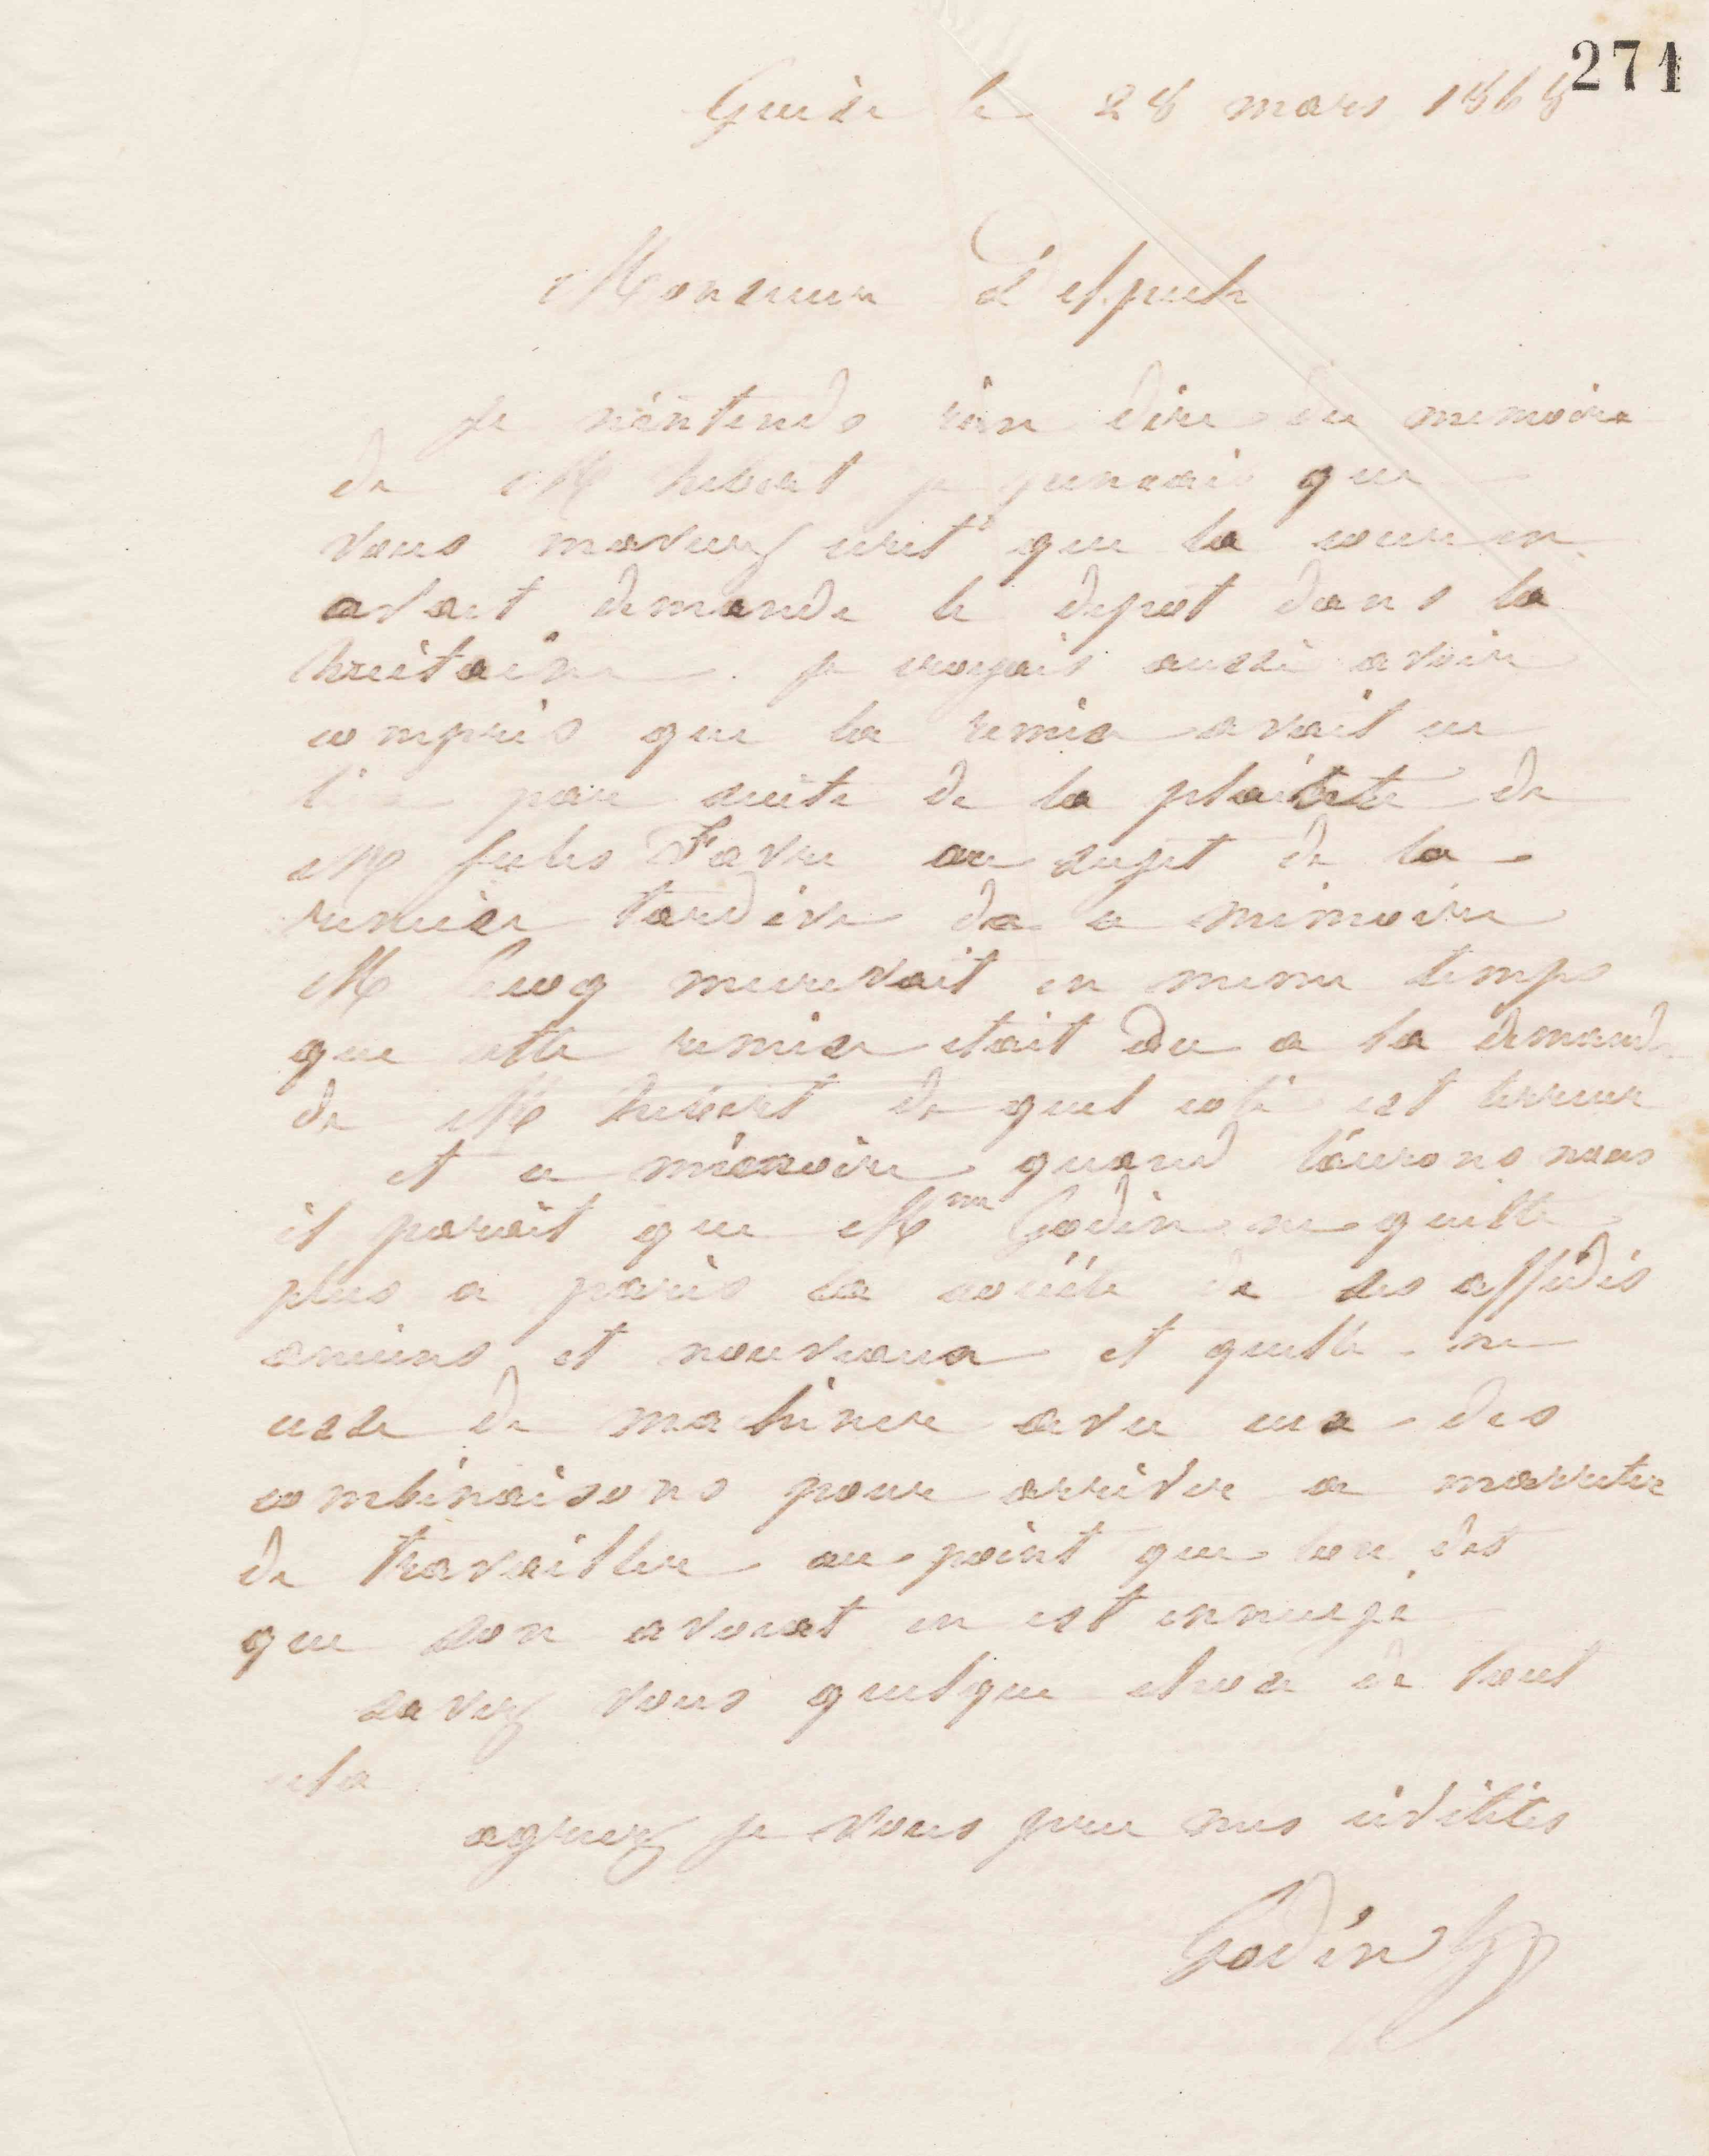 271
Guise le 28 mars 1868
Monsieur Delpech
Je n'entends rien dire du memoire
de M hebert je pensais que
vous maviez ecrit que la cour en
avait demande le depot dans la
huitaine. je croyais aussi avoir
compris que la remise avait eu
lieu par suite de la plainte de
M Jules Favre au sujet de la
remise tardive de ce memoire
M Cucq mecrivait en meme temps
que cette remise etait due a la demande
de M hebert de quel coté est lerreur
et ce mémoire quand l'aurons nous
il parait que Mme Godin ne quitte
plus a paris la société de ses affidés
anciens et nouveaux et quelle ne
cesse de machiner avec eux des
combinaisons pour arriver a marreter
de travailler au point que lon dit
que son avocat en est ennuyé
savez vous quelque chose de tout
cela
agreez je vous prie mes civilités
Godin